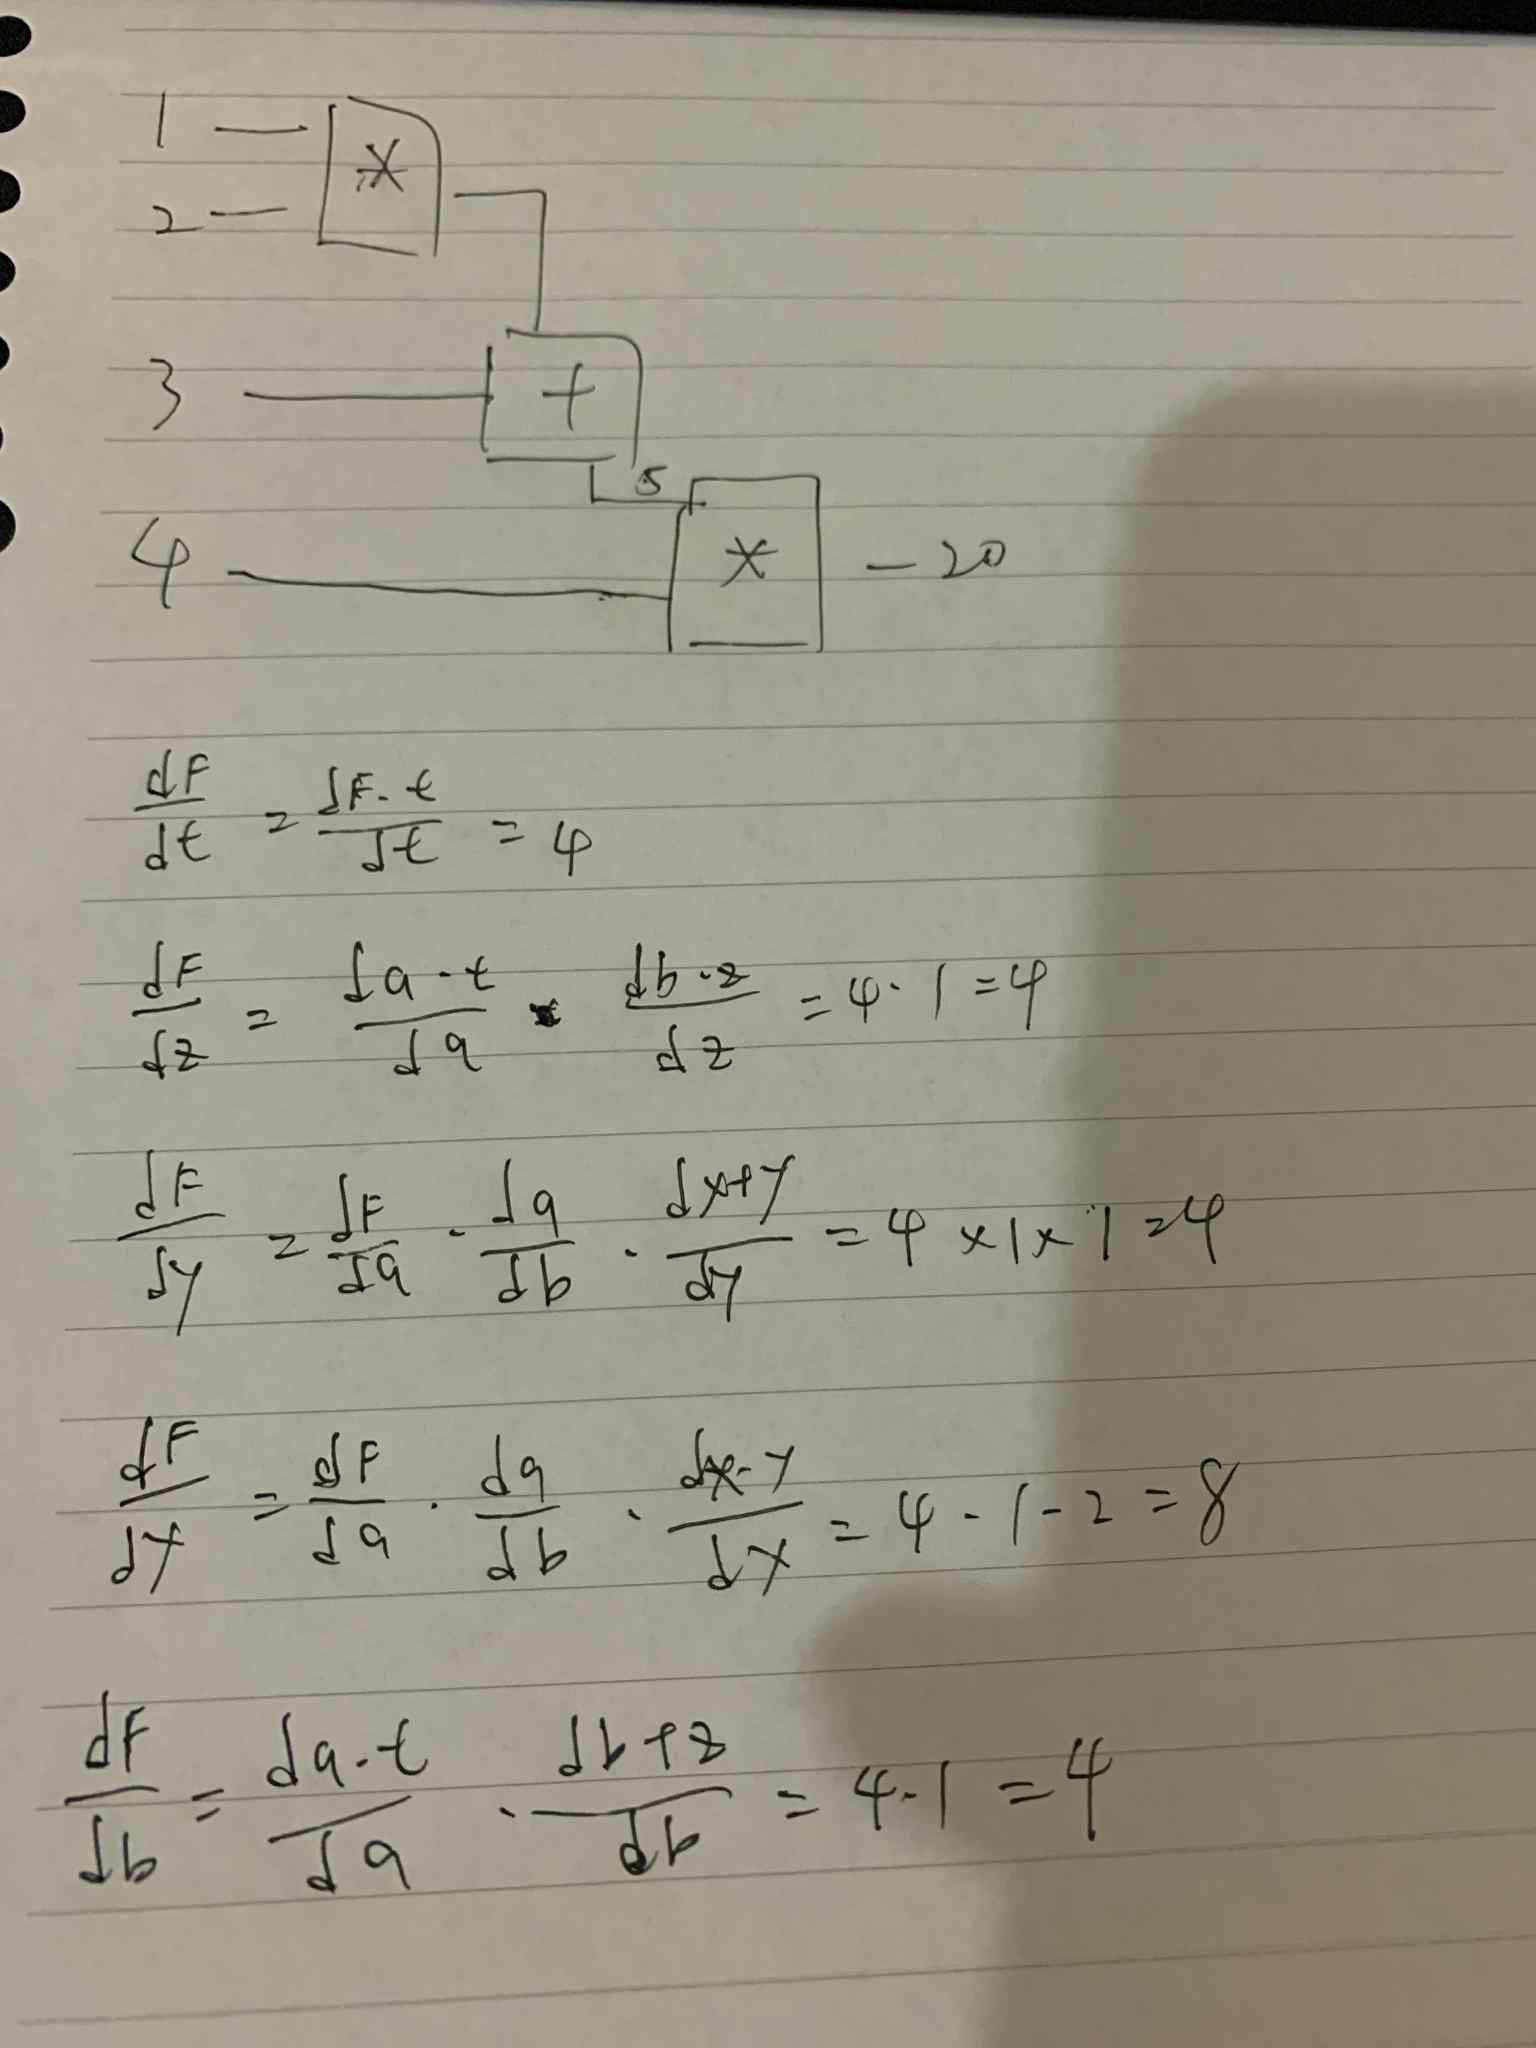 1
*
2
3
+
5
4
*
20
dF/dt = dF·t/dt = 4
dF/dz = da·t/da · db·z/dz = 4·1=4
dF/dy = dF/da · da/db · dx+y/dy = 4×1×1=4
dF/dy = dF/da · da/db · dx·y/dx = 4·1·2=8
dF/db = da·t/da · db+z/db = 4·1=4